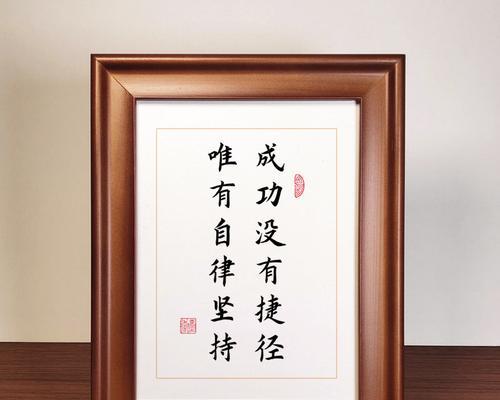 成功没有捷径
唯有自律坚持